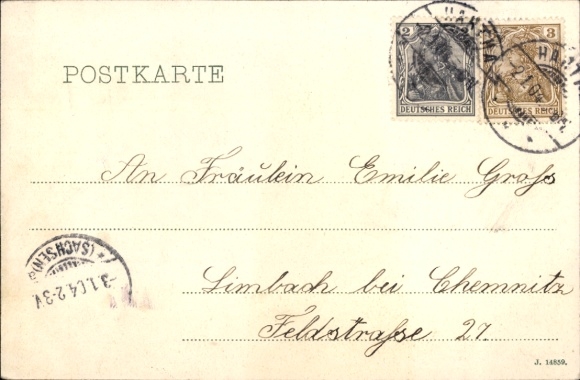 POSTKARTE
2
DEUTSCHES REICH
3
DEUTSCHES REICH
HARTHA
2.1.04
An Fräulein Emilie Groß
(SACHSEN)
3.1.04.2-3N
Limbach bei Chemnitz
Feldstraße 27.
J. 14859.